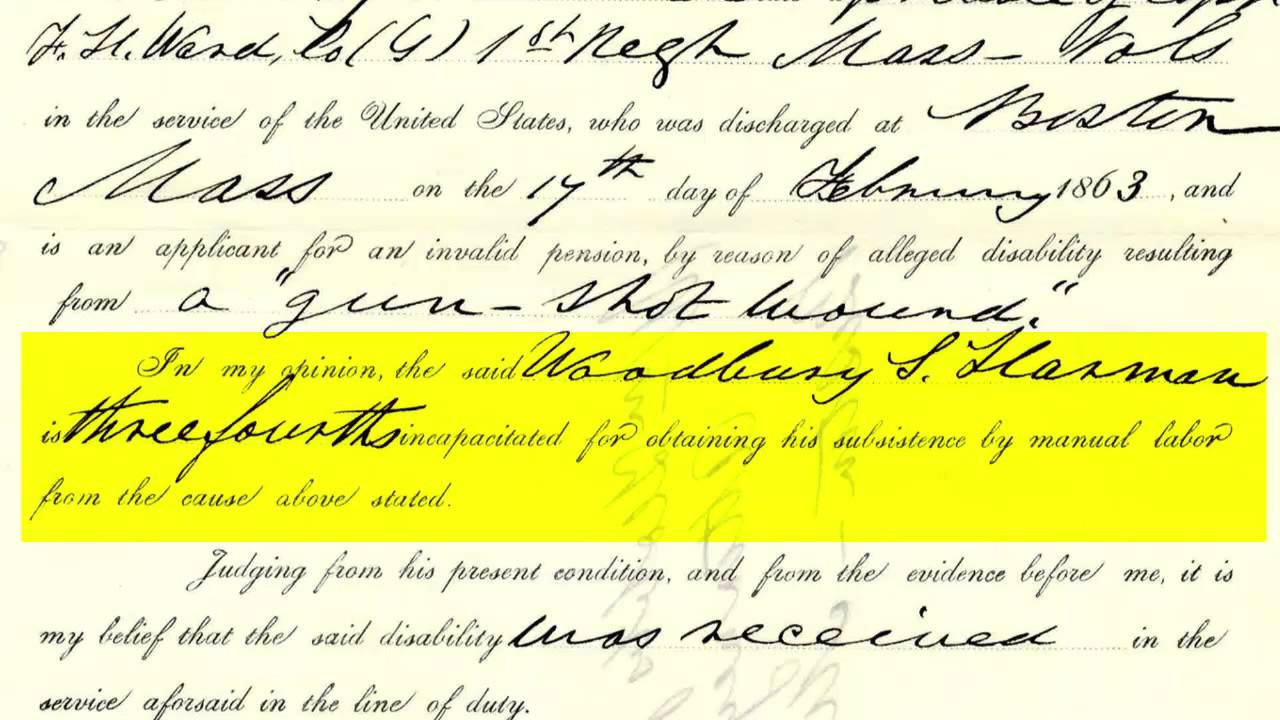 F. H. Ward, Co (G) 1st Regt Mass - Vols
in the service of the United States, who was discharged at Boston
Mass on the 17th day of February 1863, and
is an applicant for an invalid pension, by reason of alleged disability resulting
from a "gun-shot wound."
In my opinion, the said Woodbury S. Harman
is three fourths incapacitated for obtaining his subsistence by manual labor
from the cause above stated.
Judging from his present condition, and from the evidence before me, it is
my belief that the said disability was received in the
service aforsaid in the line of duty.